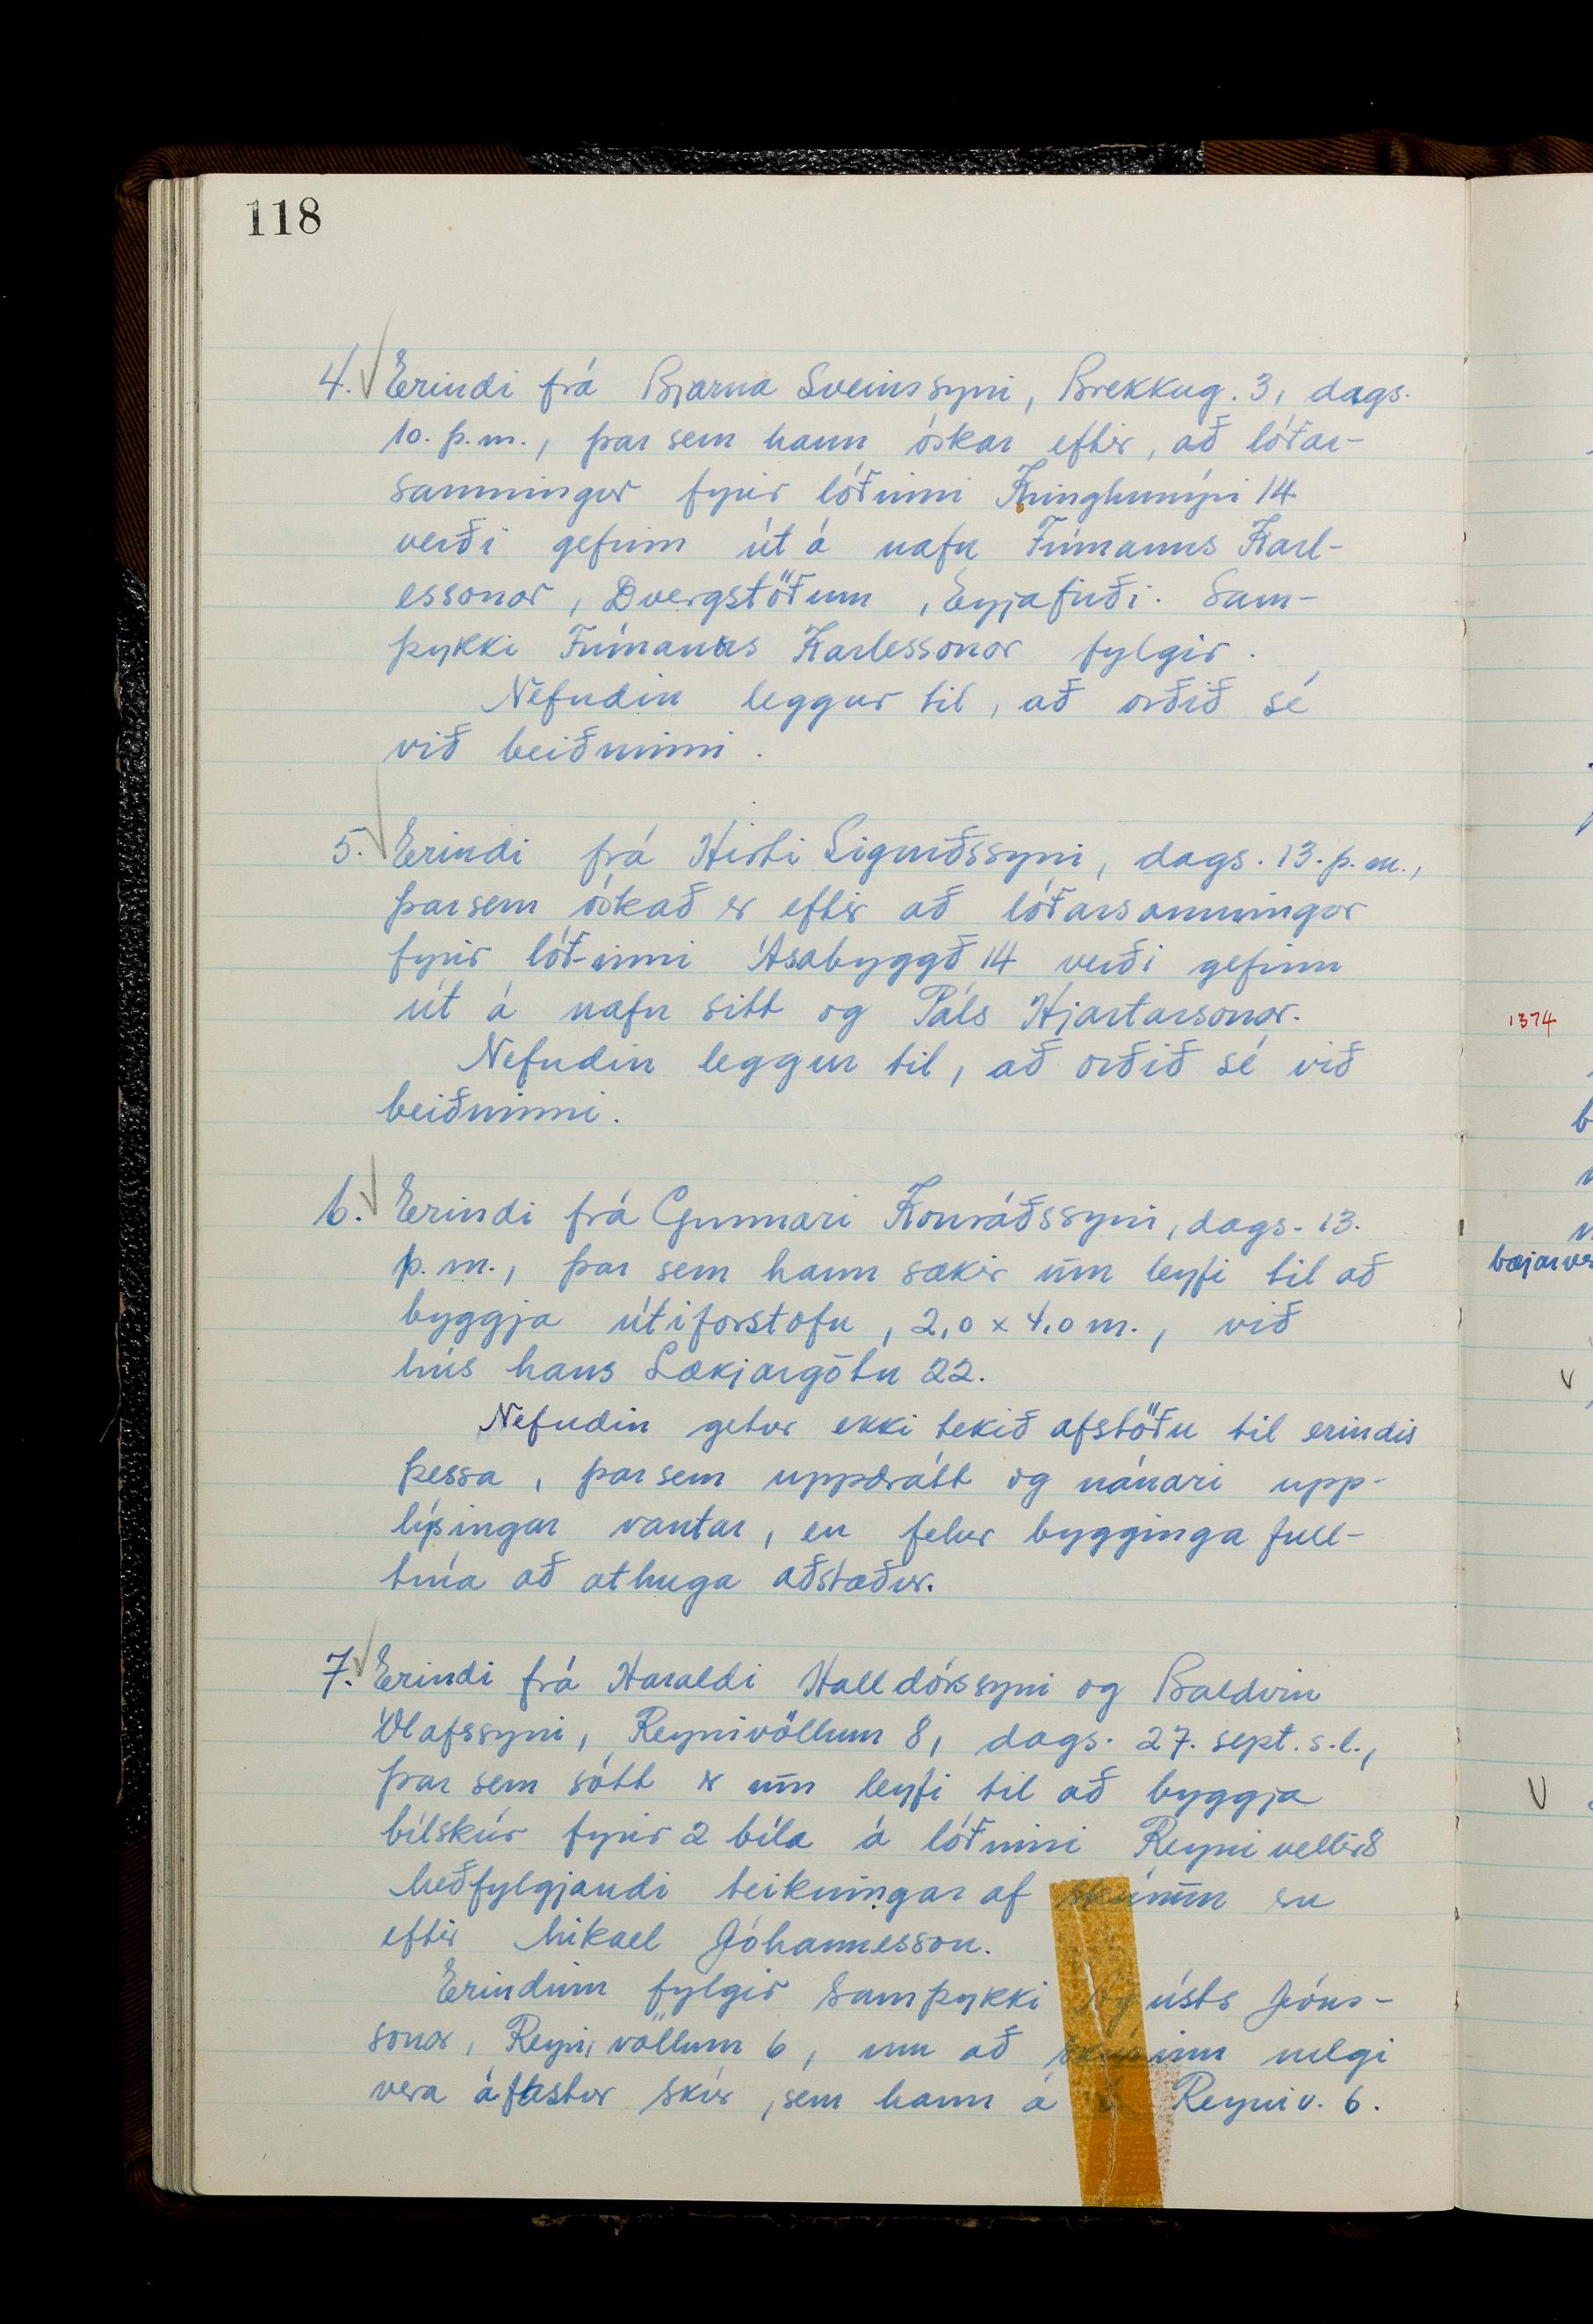 118
4. Erindi frá Bjarna Sveinssyni, Brekkug. 3, dags.
10. þ.m., þar sem hann óskar eftir, að lóðar-
samningur fyrir lóðinni Kringlumýri 14
verði gefinn út á nafn Frímanns Karl-
essonar, Dvergstöðum, Eyjafirði. Sam-
þykki Frímanns Karlessonar fylgir.
Nefndin leggur til, að orðið sé
við beiðninni.
5. Erindi frá Hirti Sigurðssyni, dags. 13. þ.m.,
þar sem óskað er eftir að lóðarsamningur
fyrir lóðinni Ásabyggð 14 verði gefinn
út á nafn sitt og Páls Hjartarsonar.
Nefndin leggur til, að orðið sé við
beiðninni.
6. Erindi frá Gunnari Konráðssyni, dags. 13.
þ.m., þar sem hann sækir um leyfi til að
byggja útiforstofu, 2,0 x 4,0 m., við
hús hans Lækjargötu 22.
Nefndin getur ekki tekið afstöðu til erindis
þessa, þar sem uppdrátt og nánari upp-
lýsingar vantar, en felur bygginga full-
trúa að athuga aðstæður.
7. Erindi frá Haraldi Halldórssyni og Baldvin
Ólafssyni, Reynivöllum 8, dags. 27. sept. s.l.,
þar sem sótt er um leyfi til að byggja
bílskúr fyrir 2 bíla á lóðinni Reynivellir 8
Meðfylgjandi teikningar af skúrnum eru
eftir Mikael Jóhannesson.
Erindinu fylgir samþykki Ágústs Jóns-
sonar, Reynivöllum 6, um að skúrinn megi
vera áfastur skúr, sem hann á á Reyniv. 6.
1374